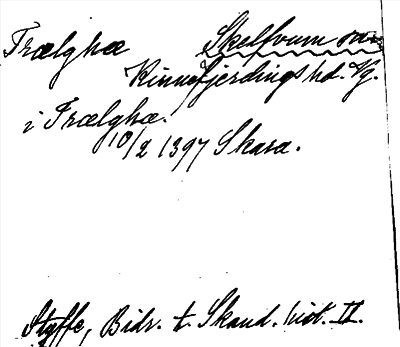 Trælghæ Skelfvum sn
Kinnefjerdings hd. Vg.
i Trælghæ.
10/2 1397 Skara.
Styffe, Bidr. t. Skand. hist. II.